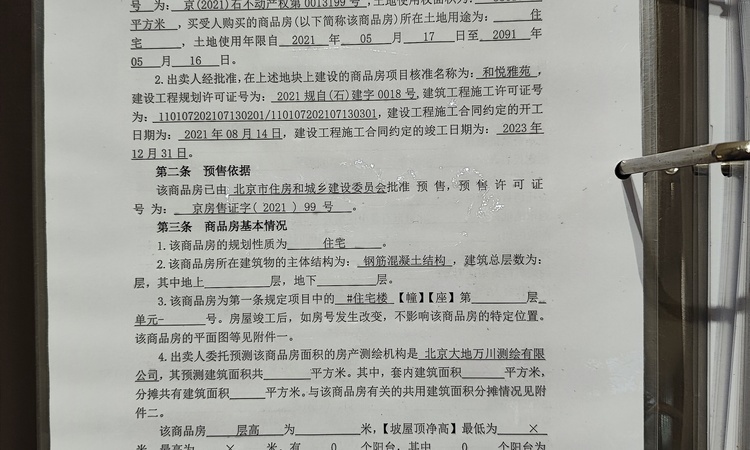 号 为: 京(2021)石不动产权第0013199号,土地使用权面积为:
平方米 ,买受人购买的商品房(以下简称该商品房)所在土地用途为: 住
宅 ,土地使用年限自 2021 年 05 月 17 日至 2091 年
05 月 16 日。
2.出卖人经批准,在上述地块上建设的商品房项目核准名称为:和悦雅苑,
建设工程规划许可证号为: 2021规自(石)建字0018号,建筑工程施工许可证号
为:110107202107130201/110107202107130301,建设工程施工合同约定的开工
日期为: 2021年08月14日,建设工程施工合同约定的竣工日期为: 2023年
12月31日。
第二条 预售依据
该商品房已由 北京市住房和城乡建设委员会批准 预 售,预 售 许 可 证
号 为: 京房售证字( 2021 ) 99 号 。
第三条 商品房基本情况
1.该商品房的规划性质为 住宅 。
2.该商品房所在建筑物的主体结构为: 钢筋混凝土结构 ,建筑总层数为:
层,其中地上 层,地下 层。
3.该商品房为第一条规定项目中的 #住宅楼 【幢】【座】第 层
单元- 号。房屋竣工后,如房号发生改变,不影响该商品房的特定位置。
该商品房的平面图等见附件一。
4.出卖人委托预测该商品房面积的房产测绘机构是 北京大地万川测绘有限
公司,其预测建筑面积共 平方米。其中,套内建筑面积 平方米,
分摊共有建筑面积 平方米。与该商品房有关的共用建筑面积分摊情况见附
件二。
该商品房 层高 为 米,【坡屋顶净高】最低为 ×
米,最高为 × 米。有 0 个阳台,其中 0 个阳台为